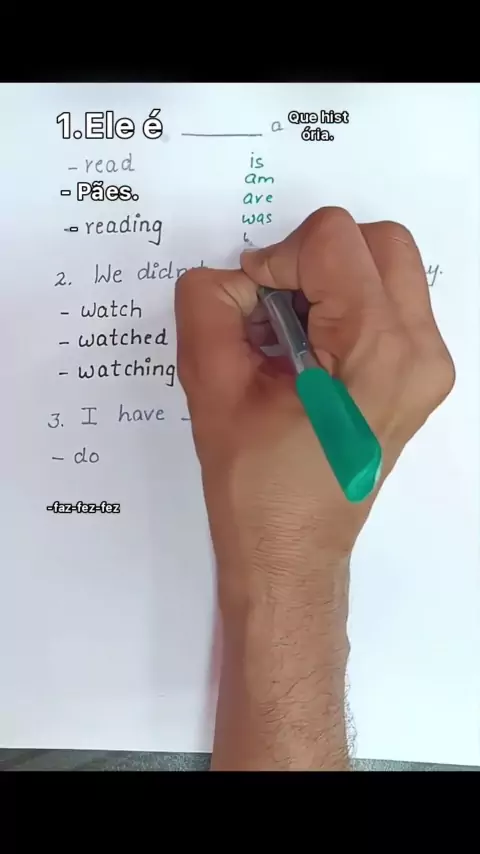 1.Ele é ______ a Que hist
ória.
- read
- Pães.
- reading
is
am
are
was
2. We didn
y.
- watch
- watched
- watching
3. I have
- do
-faz-fez-fez